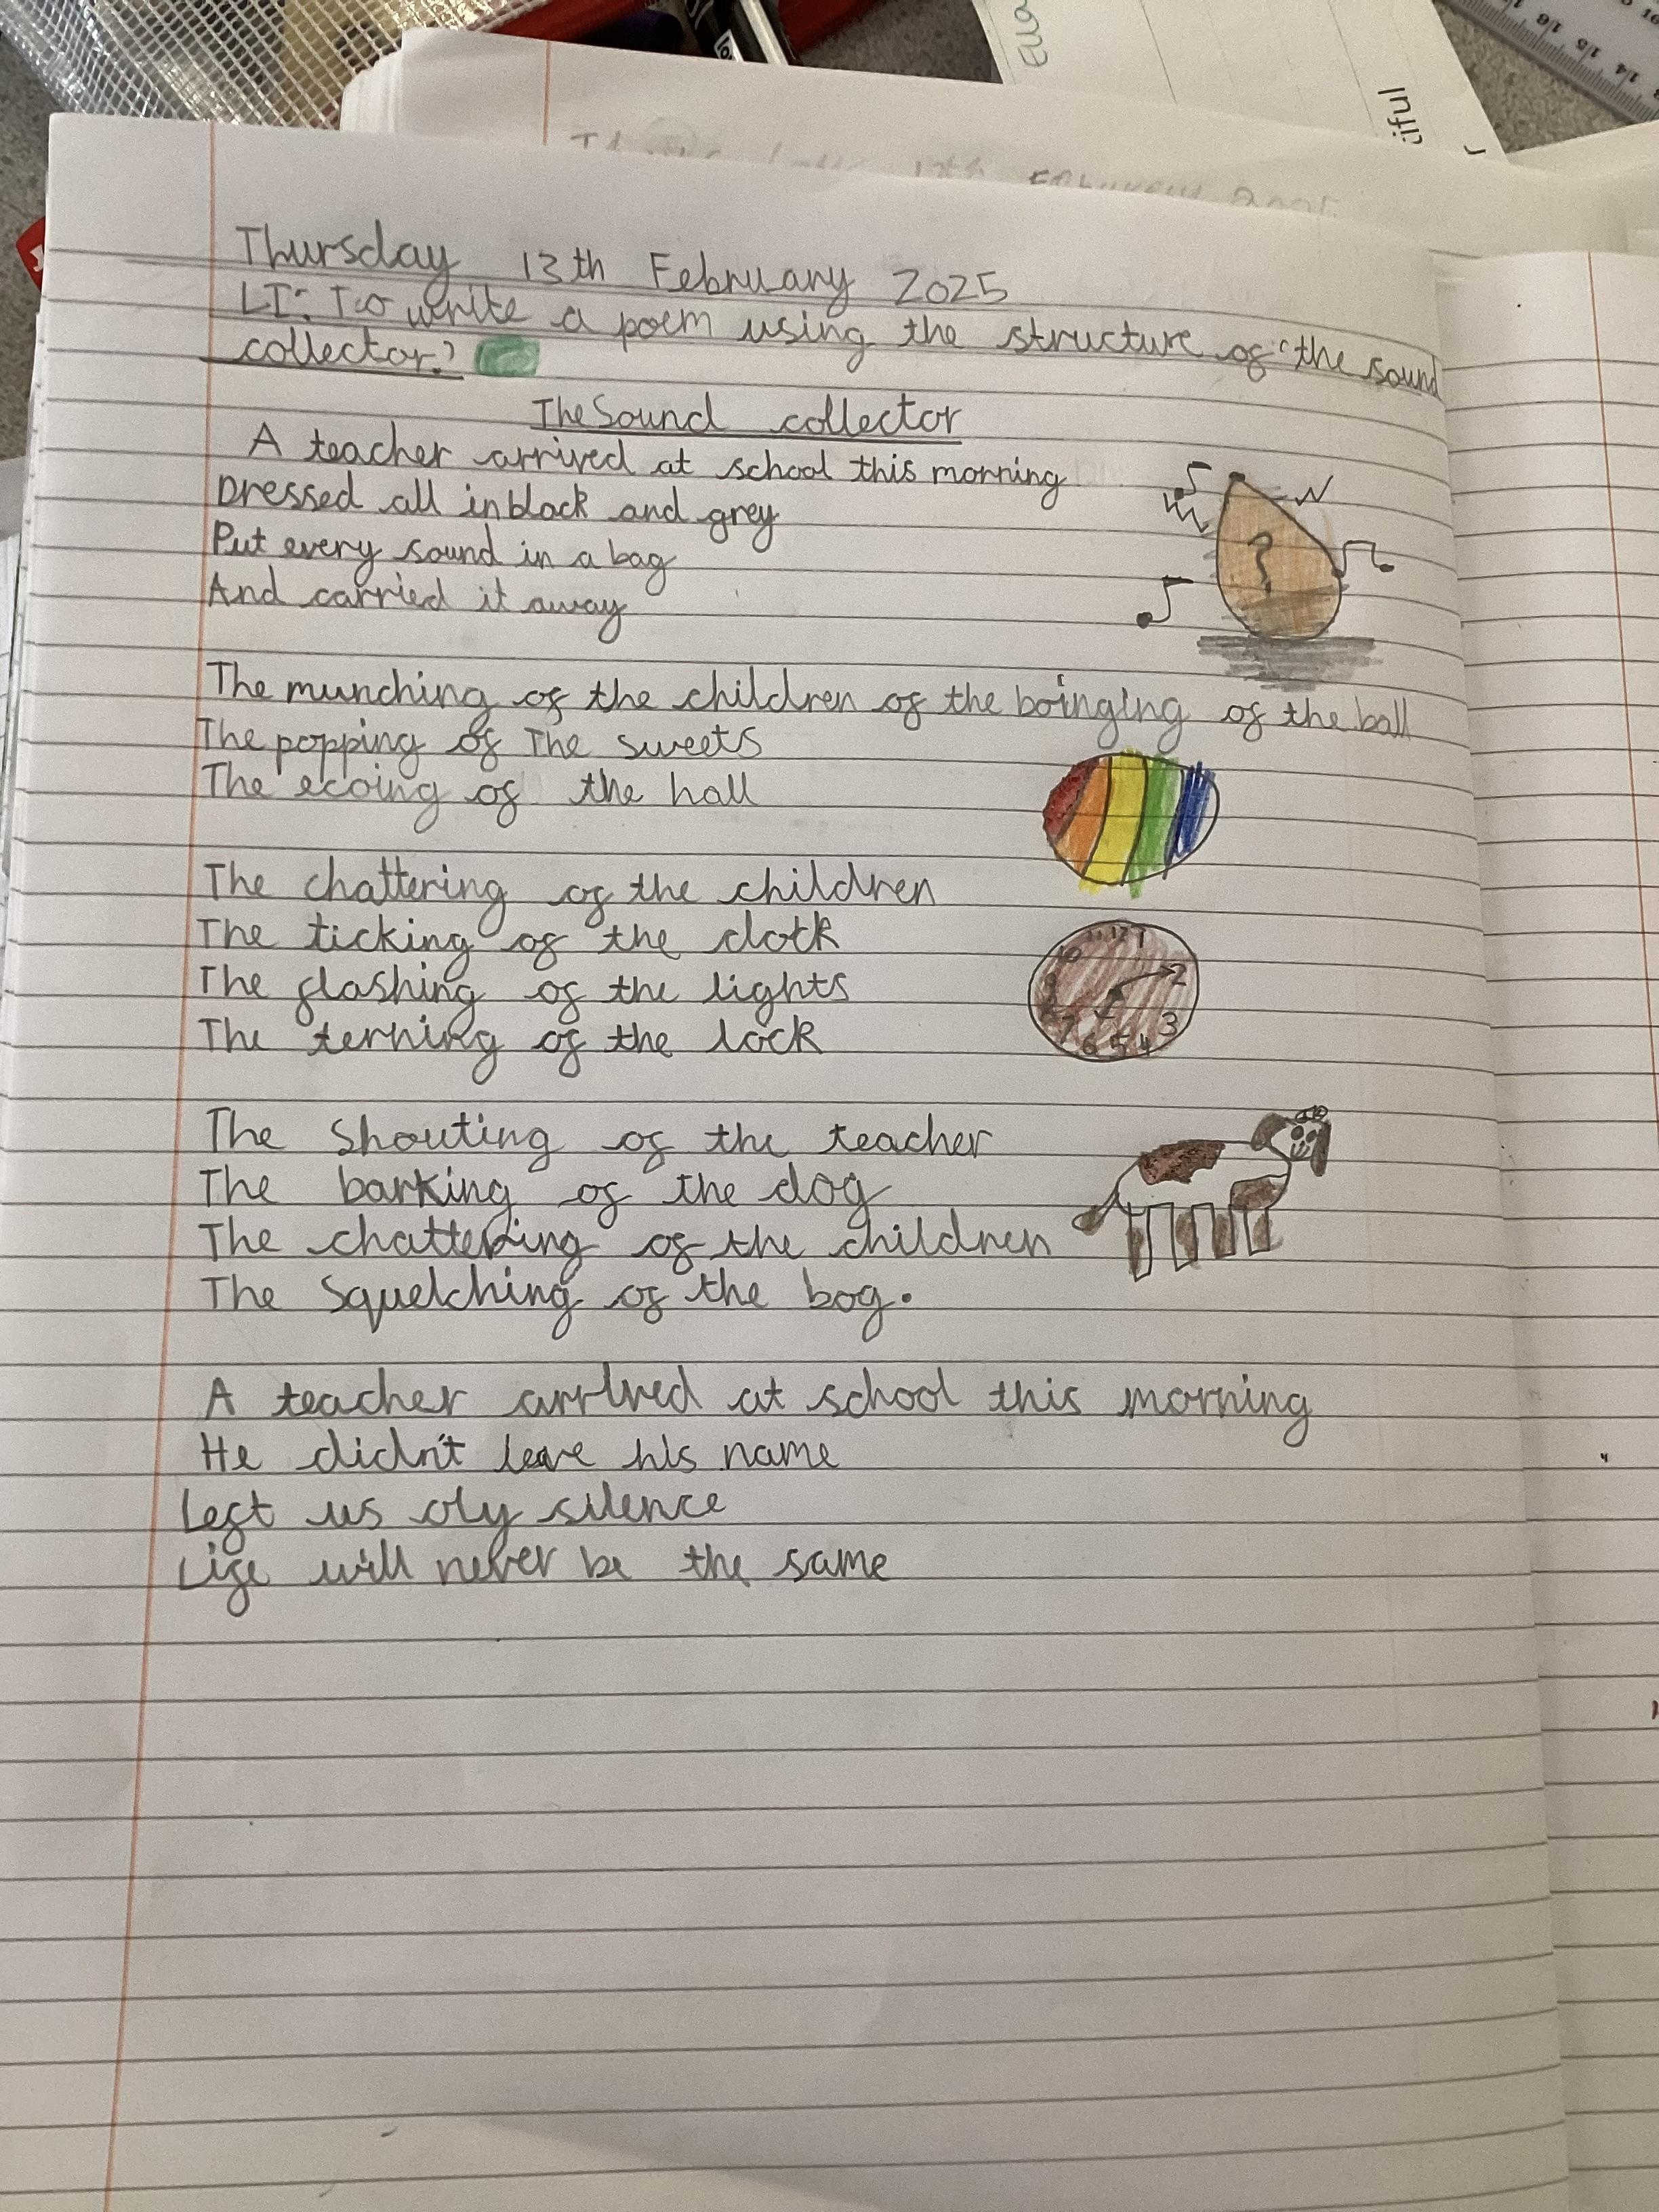 Thursday 13th February 2025
LI: To write a poem using the structure of 'the sound
collector?
The Sound collector
A teacher arrived at school this morning
Dressed all in black and grey
Put every sound in a bag
And carried it away
?
The munching of the children of the boinging of the ball
The popping of The sweets
The ecoing of the hall
The chattering of the children
The ticking of the clock
The flashing of the lights
The terning of the lock
11 12 1
10 2
9 3
8 7 6 5 4
The Shouting of the teacher
The barking of the dog
The chattering of the children
The Squelching of the bog.
A teacher arrived at school this morning
He didn't leave his name
Left us oly silence
Life will never be the same
Ella
ciful
16 15 14